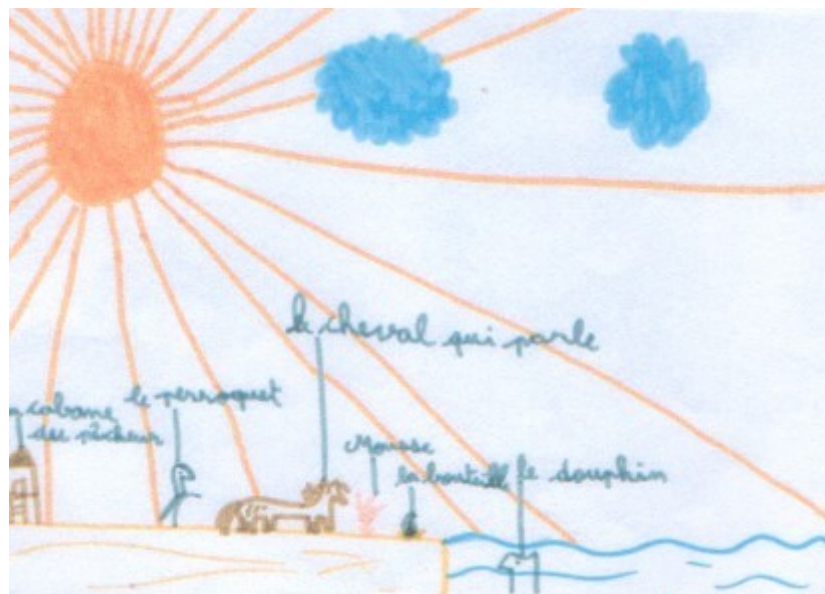 le cheval qui parle
cabane
du pêcheur
le perroquet
Mousse
la bouteill
le dauphin